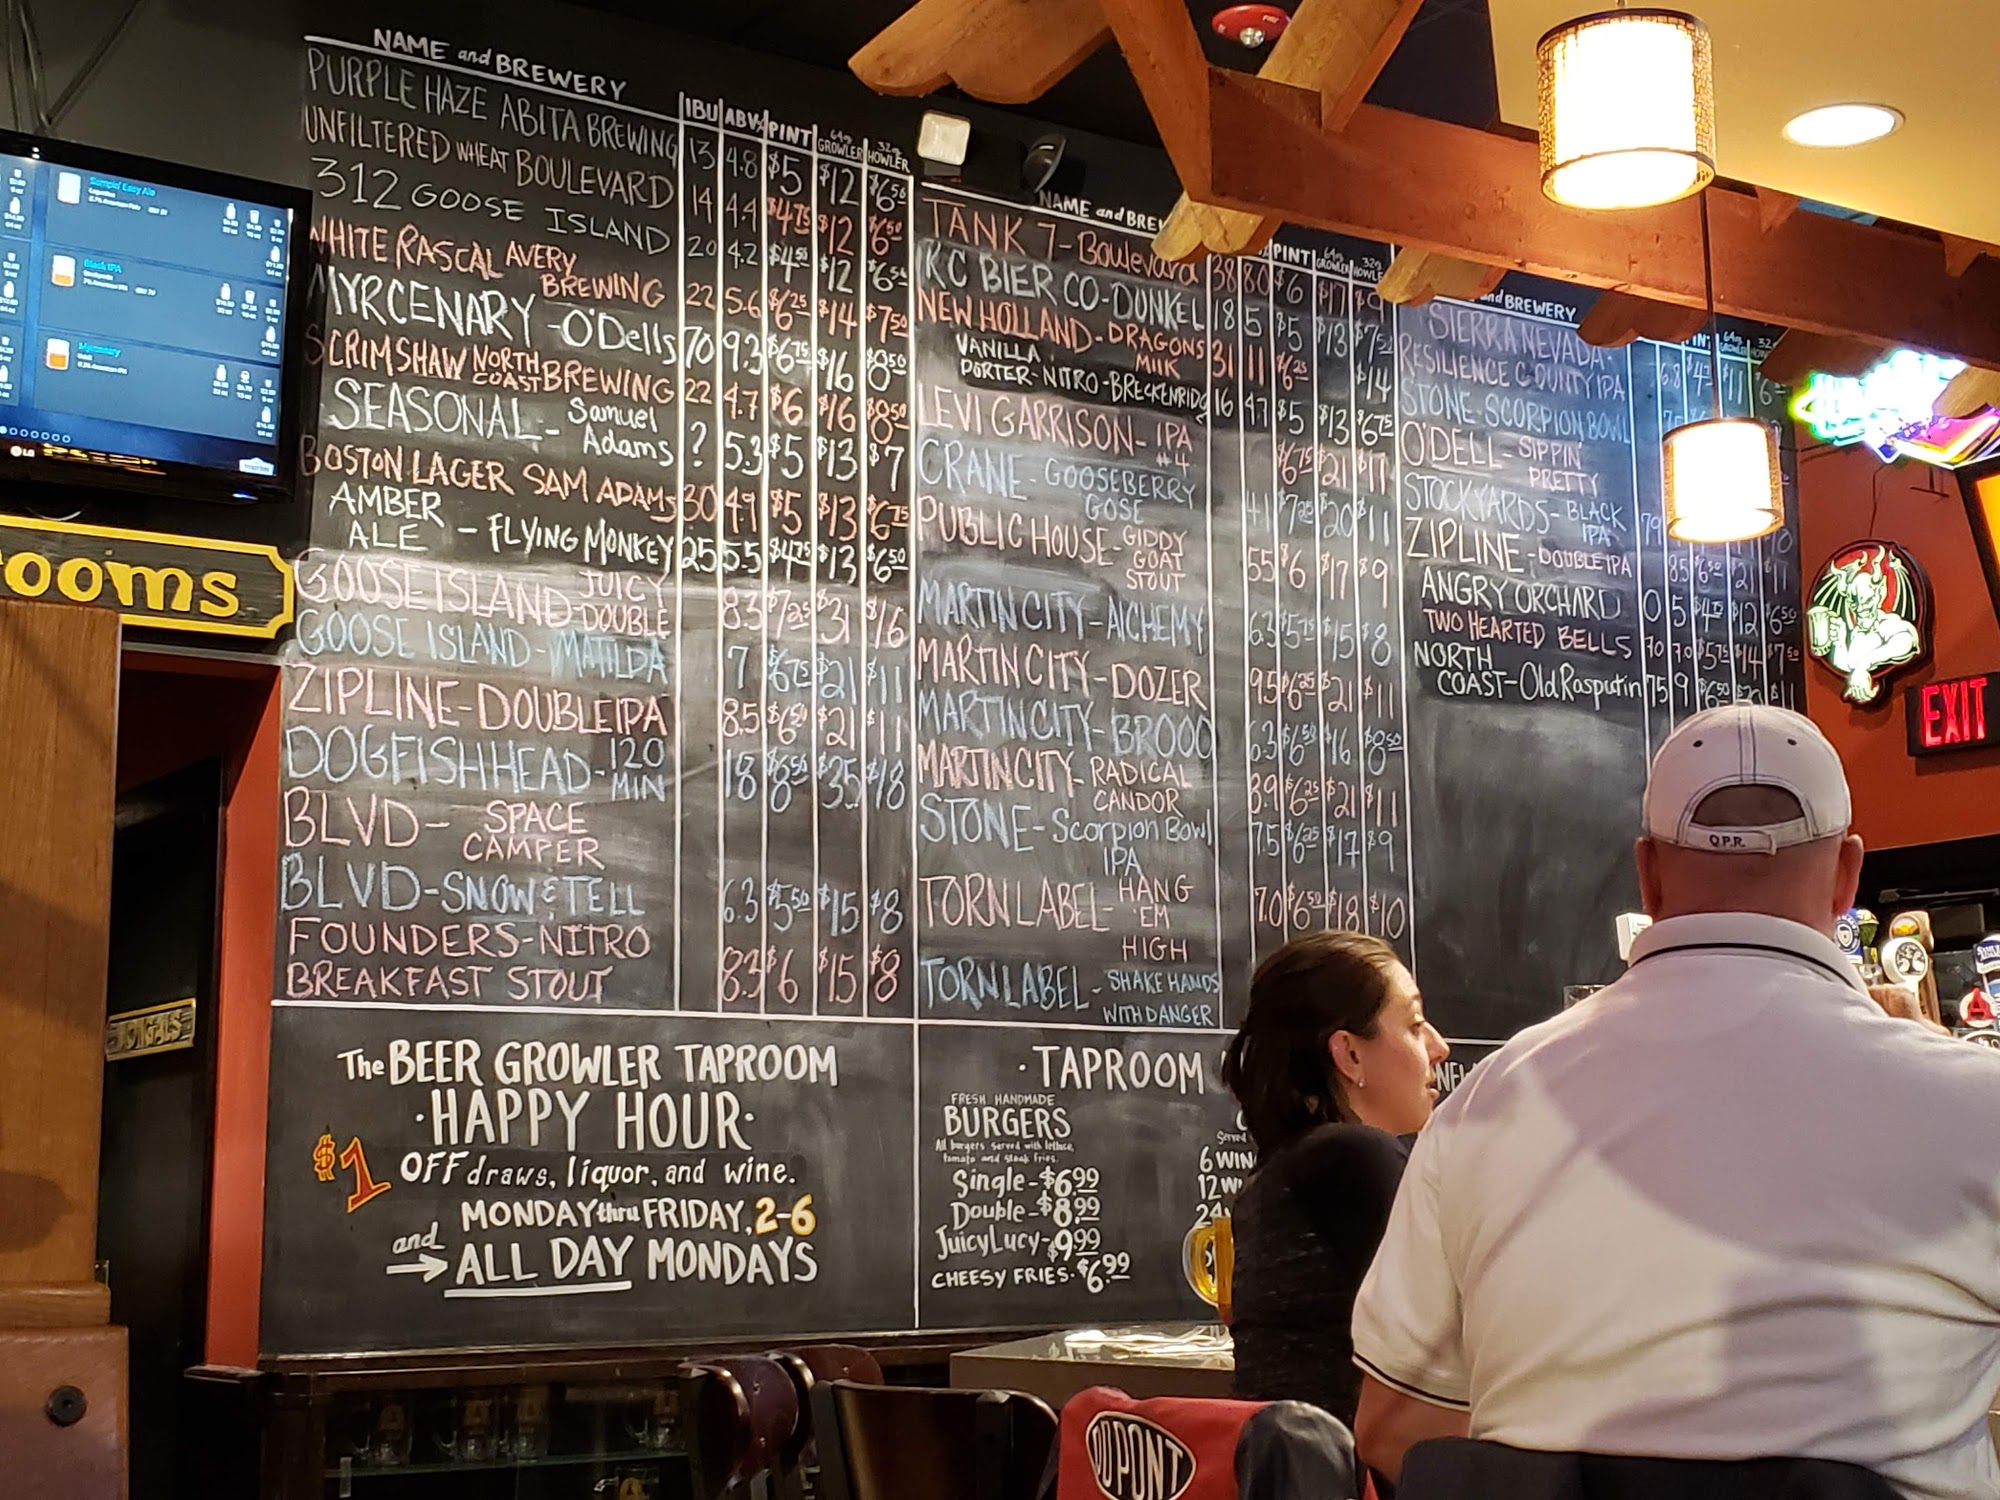 NAME and BREWERY IBU ABV% PINT 64oz GROWLER 32oz HOWLER
PURPLE HAZE ABITA BREWING 13 4.8 $5 $12 $6.50
UNFILTERED WHEAT BOULEVARD 14 4.4 $4.75 $12 $6.50
312 GOOSE ISLAND 20 4.2 $4.50 $12 $6.50
WHITE RASCAL AVERY
BREWING 22 5.6 $6.25 $14 $7.50
MYRCENARY - O'Dells 70 9.3 $6.75 $16 $8.50
SCRIMSHAW NORTH COAST BREWING 22 4.7 $6 $16 $8.50
SEASONAL - Samuel
Adams ? 5.3 $5 $13 $7
BOSTON LAGER SAM ADAMS 30 4.9 $5 $13 $6.75
AMBER
ALE - FLYING MONKEY 25 5.5 $4.75 $13 $6.50
GOOSE ISLAND - JUICY
DOUBLE 8.3 $7.25 $31 $16
GOOSE ISLAND - MATILDA 7 $6.75 $21 $11
ZIPLINE - DOUBLE IPA 8.5 $6.50 $21 $11
DOGFISHHEAD - 120
MIN 18 $8.50 $35 $18
BLVD - SPACE
CAMPER
BLVD - SNOW & TELL 6.3 $5.50 $15 $8
FOUNDERS - NITRO
BREAKFAST STOUT 8.3 $6 $15 $8
The BEER GROWLER TAPROOM
·HAPPY HOUR·
$1 OFF draws, liquor, and wine.
MONDAY thru FRIDAY, 2-6
and
→ ALL DAY MONDAYS
NAME and BREW PINT 64oz GROWLER 32oz HOWLE
TANK 7 - Boulevard 38 8.0 $6 $17 $9
KC BIER CO - DUNKEL 18 5 $5 $13 $7.50
NEW HOLLAND - DRAGONS
MILK 31 11 $6.25 $14
VANILLA
PORTER - NITRO - BRECKENRIDG 16 4.7 $5 $13 $6.75
LEVI GARRISON - IPA
#4 $6.75 $21 $11
CRANE - GOOSEBERRY
GOSE 4.1 $7.25 $20 $11
PUBLIC HOUSE - GIDDY
GOAT
STOUT 5.5 $6 $17 $9
MARTIN CITY - ALCHEMY 6.3 $5.75 $15 $8
MARTIN CITY - DOZER 9.5 $6.25 $21 $11
MARTIN CITY - BROOD 6.3 $6.50 $16 $8.50
MARTIN CITY - RADICAL
CANDOR 8.9 $6.25 $21 $11
STONE - Scorpion Bowl
IPA 7.5 $6.25 $17 $9
TORN LABEL - HANG
'EM
HIGH 7.0 $6.50 $18 $10
TORN LABEL - SHAKE HANDS
WITH DANGER
·TAPROOM
FRESH HANDMADE
BURGERS
All burgers served with lettuce,
tomato and steak fries.
Single - $6.99
Double - $8.99
Juicy Lucy - $9.99
CHEESY FRIES - $6.99
Served
6 WIN
12 WI
24
NEW
and BREWERY
SIERRA NEVADA
RESILIENCE COUNTY IPA 6.8
STONE - SCORPION BOWL
O'DELL - SIPPIN'
PRETTY
STOCKYARDS - BLACK
IPA
ZIPLINE - DOUBLE IPA 8.5 $6.50 $21 $11
ANGRY ORCHARD 0 5 $4.75 $12 $6.50
TWO HEARTED BELLS 70 7.0 $5.75 $14 $7.50
NORTH
COAST - Old Rasputin 75 9 $6.50
Sumpin' Easy Ale
Black IPA
Myrcenary
LG
ooms
EXIT
Q.P.R.
DUPONT